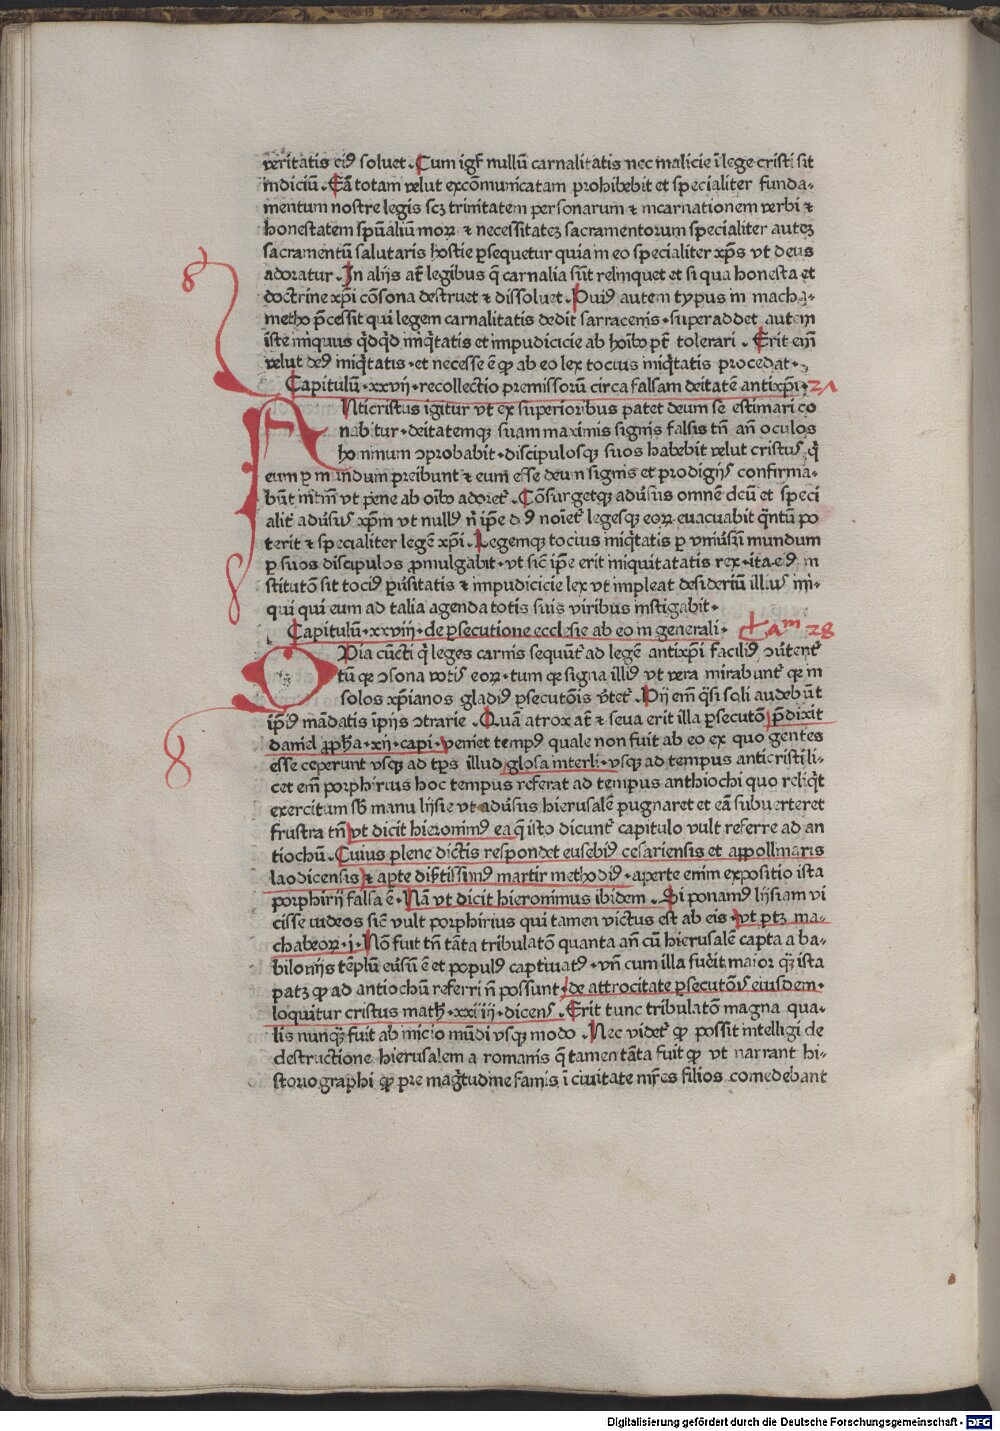 veritatis eiꝰ soluet . Cum igit᷑ nullũ carnalitatis nec malicie ĩ lege cristi sit
indiciũ . Eã totam velut excõmunicatam prohibebit et specialiter funda-
mentum nostre legis scꝫ trinitatem personarum ⁊ incarnationem verbi ⁊
honestatem spũaliũ moꝝ ⁊ necessitateꝫ sacramentorum specialiter auteꝫ
sacramentũ salutaris hostie ꝑsequetur quia in eo specialiter xp̃s vt deus
adoratur . In alijs at̃ legibus q̃ carnalia sũt relinquet et si qua honesta et
doctrine xp̃i cõsona destruet ⁊ dissoluet . Huiꝰ autem typus in macho-
metho p̃cessit qui legem carnalitatis dedit sarracenis . superaddet autem
iste iniquus qdqd iniqtatis et impudicicie ab hoĩbꝰ pt̃ tolerari . Erit em̃
velut deꝰ iniqtatis . et necesse ẽ ꝙ ab eo lex tocius iniqtatis procedat .
Capitulũ . xxvij . recollectio premissorũ circa falsam deitatẽ antixp̃i . 27
ANticristus igitur vt ex superioribus patet deum se estimari co
nabitur . deitatemqꝫ suam maximis signis falsis tñ añ oculos
hominum ꝯprobabit . discipulosqꝫ suos habebit velut cristus q̃
eum ꝑ mundum preibunt ⁊ eum esse deum signis et prodigijs confirma-
bũt inĩm̃ vt pene ab oĩbꝰ adoret᷑ . Cõsurgetqꝫ aduersus omnẽ deũ et speci
alit᷑ aduersus xp̃m vt nullꝰ nĩ ip̃e dꝰ noĩet᷑ legesqꝫ eoꝝ euacuabit q̃ntũ po
terit ⁊ specialiter legẽ xp̃i . Legemqꝫ tocius iniqtatis ꝑ vniuersũ mundum
ꝑ suos discipulos ꝓmulgabit . vt sic ip̃e erit iniquitatis rex . ita eiꝰ in
stitutõ sit tociꝰ ꝑuersitatis ⁊ impudicicie lex vt impleat desideriũ illius ini-
qui qui eum ad talia agenda totis suis viribus instigabit .
Capitulũ . xxviij . de ꝑsecutione ecclesie ab eo in generali . Cam 28
QVia cũcti q̃ leges carnis sequũt᷑ ad legẽ antixp̃i faciliꝰ ꝯuertent᷑
tũ qꝛ ꝯsona votis eoꝝ . tum qꝛ signa illiꝰ vt vera mirabunt᷑ qꝛ in
solos xp̃ianos gladiꝰ ꝑsecutõis v̾tet᷑ . Hij em̃ q̃si soli audebũt
ip̃iꝰ mãdatis impijs ꝯtrarie . Quã atrox at̃ ⁊ seua erit illa ꝑsecutõ p̃dixit
daniel ꝓph̃a . xij . capi . veniet tempꝰ quale non fuit ab eo ex quo gentes
esse ceperunt vsqꝫ ad tp̃s illud glosa interli . vsqꝫ ad tempus anticristi li-
cet em̃ porphirius hoc tempus referat ad tempus anthiochi quo reliq̃t
exercitum sb̃ manu lijsie vt aduersus hierusalẽ pugnaret et eã subuerteret
frustra tñ vt dicit hieronimꝰ ea q̃ isto dicunt᷑ capitulo vult referre ad an
tiochũ . Cuius plene dictis respondet eusebiꝰ cesariensis et appollinaris
laodicensis ⁊ aperte disertissimꝰ martir methodiꝰ . aperte enim expositio ista
porphirij falsa ẽ . Nã vt dicit hieronimus ibidem . Si ponamꝰ lijsiam vi
cisse iudeos sic̃ vult porphirius qui tamen victus est ab eis . vt ptꝫ ma-
chabeoꝝ . j . Nõ fuit tñ tãta tribulatõ quanta añ cũ hierusalẽ capta a ba-
bilonijs tẽplũ euersũ ẽ et populꝰ captiuatꝰ . vñ cum illa fuerit maior qꝫ ista
patꝫ ꝙ ad antiochũ referri ñ possunt . de attrocitate ꝑsecutõis eiusdem .
loquitur cristus math̃ . xxiiij . dicens . Erit tunc tribulatõ magna qua-
lis nunqꝫ fuit ab inicio mũdi vsqꝫ modo . Nec videt᷑ ꝙ possit intelligi de
destructione hierusalem a romanis q̃ tamen tãta fuit ꝙ vt narrant hi-
storiographi ꝙ pre magtudine famis ĩ ciuitate mr̃es filios comedebant
Digitalisierung gefördert durch die Deutsche Forschungsgemeinschaft - DFG